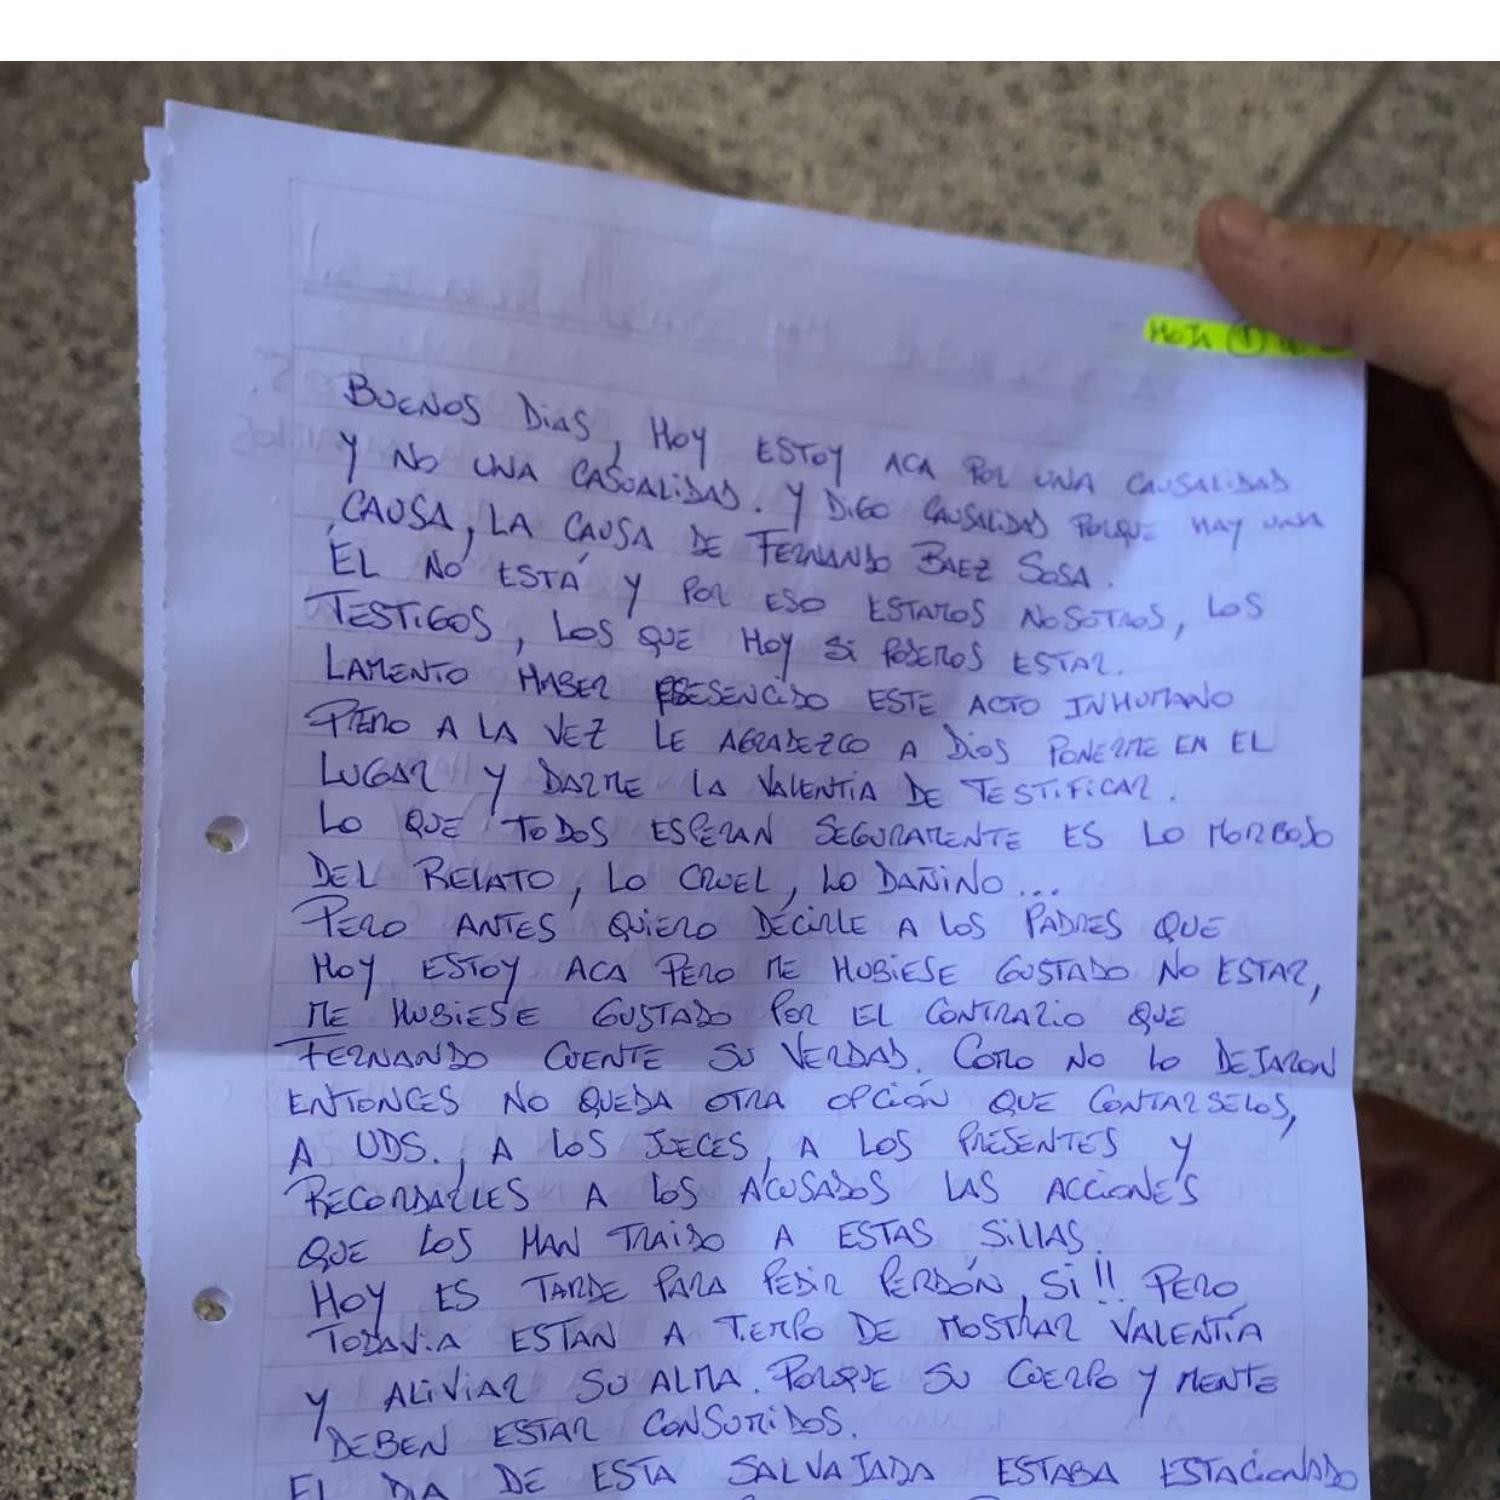 HOJA 1
BUENOS DIAS, HOY ESTOY ACA POR UNA CAUSALIDAD
Y NO UNA CASUALIDAD. Y DIGO CAUSALIDAD PORQUE HAY UNA
CAUSA, LA CAUSA DE FERNANDO BAEZ SOSA.
ÉL NO ESTÁ Y POR ESO ESTAMOS NOSOTROS, LOS
TESTIGOS, LOS QUE HOY SI PODEMOS ESTAR.
LAMENTO HABER PRESENCIDO ESTE ACTO INHUMANO
PERO A LA VEZ LE AGRADEZCO A DIOS PONERME EN EL
LUGAR Y DARME LA VALENTÍA DE TESTIFICAR.
LO QUE TODOS ESPERAN SEGURAMENTE ES LO MORBOSO
DEL RELATO, LO CRUEL, LO DAÑINO...
PERO ANTES QUIERO DECIRLE A LOS PADRES QUE
HOY ESTOY ACA PERO ME HUBIESE GUSTADO NO ESTAR,
ME HUBIESE GUSTADO POR EL CONTRARIO QUE
FERNANDO CUENTE SU VERDAD. COMO NO LO DEJARON
ENTONCES NO QUEDA OTRA OPCIÓN QUE CONTARSELOS,
A UDS., A LOS JUECES, A LOS PRESENTES Y
RECORDARLES A LOS ACUSADOS LAS ACCIONES
QUE LOS HAN TRAIDO A ESTAS SILLAS.
HOY ES TARDE PARA PEDIR PERDÓN, SI!! PERO
TODAVIA ESTAN A TIEMPO DE MOSTRAR VALENTÍA
Y ALIVIAR SU ALMA. PORQUE SU CUERPO Y MENTE
DEBEN ESTAR CONSUMIDOS.
EL DIA DE ESTA SALVAJADA ESTABA ESTACIONADO